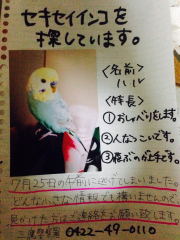 セキセイインコを
探しています。
〈名前〉
ハル
〈特長〉
①おしゃべりします。
②人なつこいです。
③飛ぶのが上手です。
7月25日の午前に逃げてしまいました。
どんな小さな情報でも構いませんので、
見かけた方はご連絡をお願い致します。
三鷹警察署 0422-49-0110